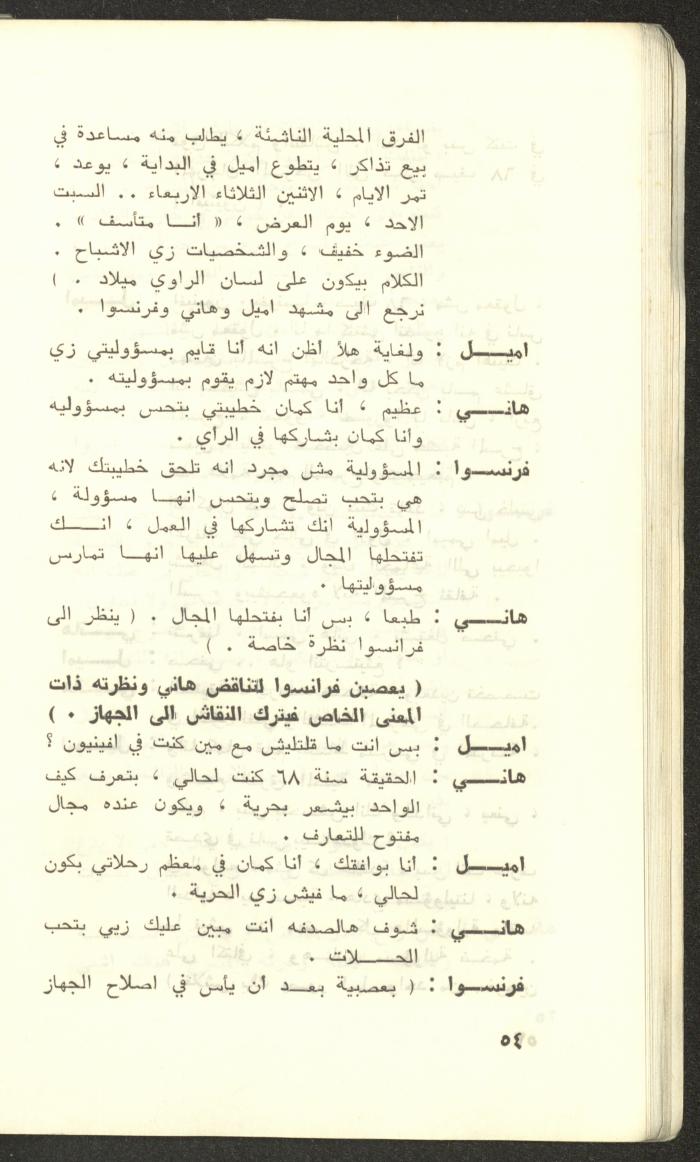 الفرق المحلية الناشئة ، يطالب منه مساعدة في
بيع تذاكر ، يتطوع اميل في البداية ، يوعد ،
تمر الايام ، الاثنين الثلاثاء الاربعاء .. السبت
الاحد ، يوم العرض ، « أنـــا متأسف » .
الضوء خفيف ، والشخصيات زي الاشباح .
الكلام بيكون على لسان الراوي ميلاد . )
نرجع الى مشهد اميل وهاني وفرنسوا .
اميـــــل : ولغاية هلأ أظن انه أنا قايم بمسؤوليتي زي
ما كل واحد مهتم لازم يقوم بمسؤوليته .
هانـــــي : عظيم ، أنا كمان خطيبتي بتحس بمسؤوليه
وأنا كمان بشاركها في الرأي .
فرنســـوا : المسؤولية مش مجرد انه تلحق خطيبتك لانه
هي بتحب تصلح وبتحس انهـــا مسؤولة ،
المسؤولية انك تشاركها في العمل ، انـــــك
تفتحلها المجال وتسهل عليها انهـــا تمارس
مسؤوليتها .
هانـــــي : طبعا ، بس أنا بفتحلها المجال . ( ينظر الى
فرانسوا نظرة خاصة . )
( يعصبن فرانسوا لتناقض هاني ونظرته ذات
المعنى الخاص فيترك النقاش الى الجهاز . )
اميـــــل : بس انت ما قلتليش مع مين كنت في افينيون ؟
هانـــــي : الحقيقة سنة ٦٨ كنت لحالي ، بتعرف كيف
الواحد بيشعر بحرية ، ويكون عنده مجال
مفتوح للتعارف .
اميـــــل : أنا بوافقك ، أنا كمان في معظم رحلاتي بكون
لحالي ، ما فيش زي الحرية .
هانـــــي : شوف هالصدفه انت مبين عليك زيي بتحب
الحـــــلات .
فرنســـوا : ( بعصبية بعـــد أن يأس في اصلاح الجهاز
٥٤